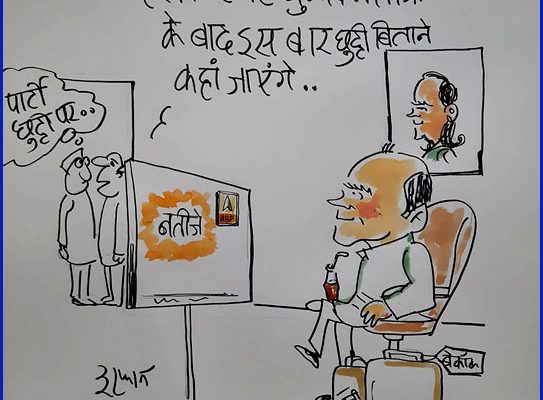 के बाद इस बार छुट्टी बिताने
कहां जाएंगे..
पार्टी
छुट्टी पर..
नतीजे
ABP
बैंकॉक
इरफान